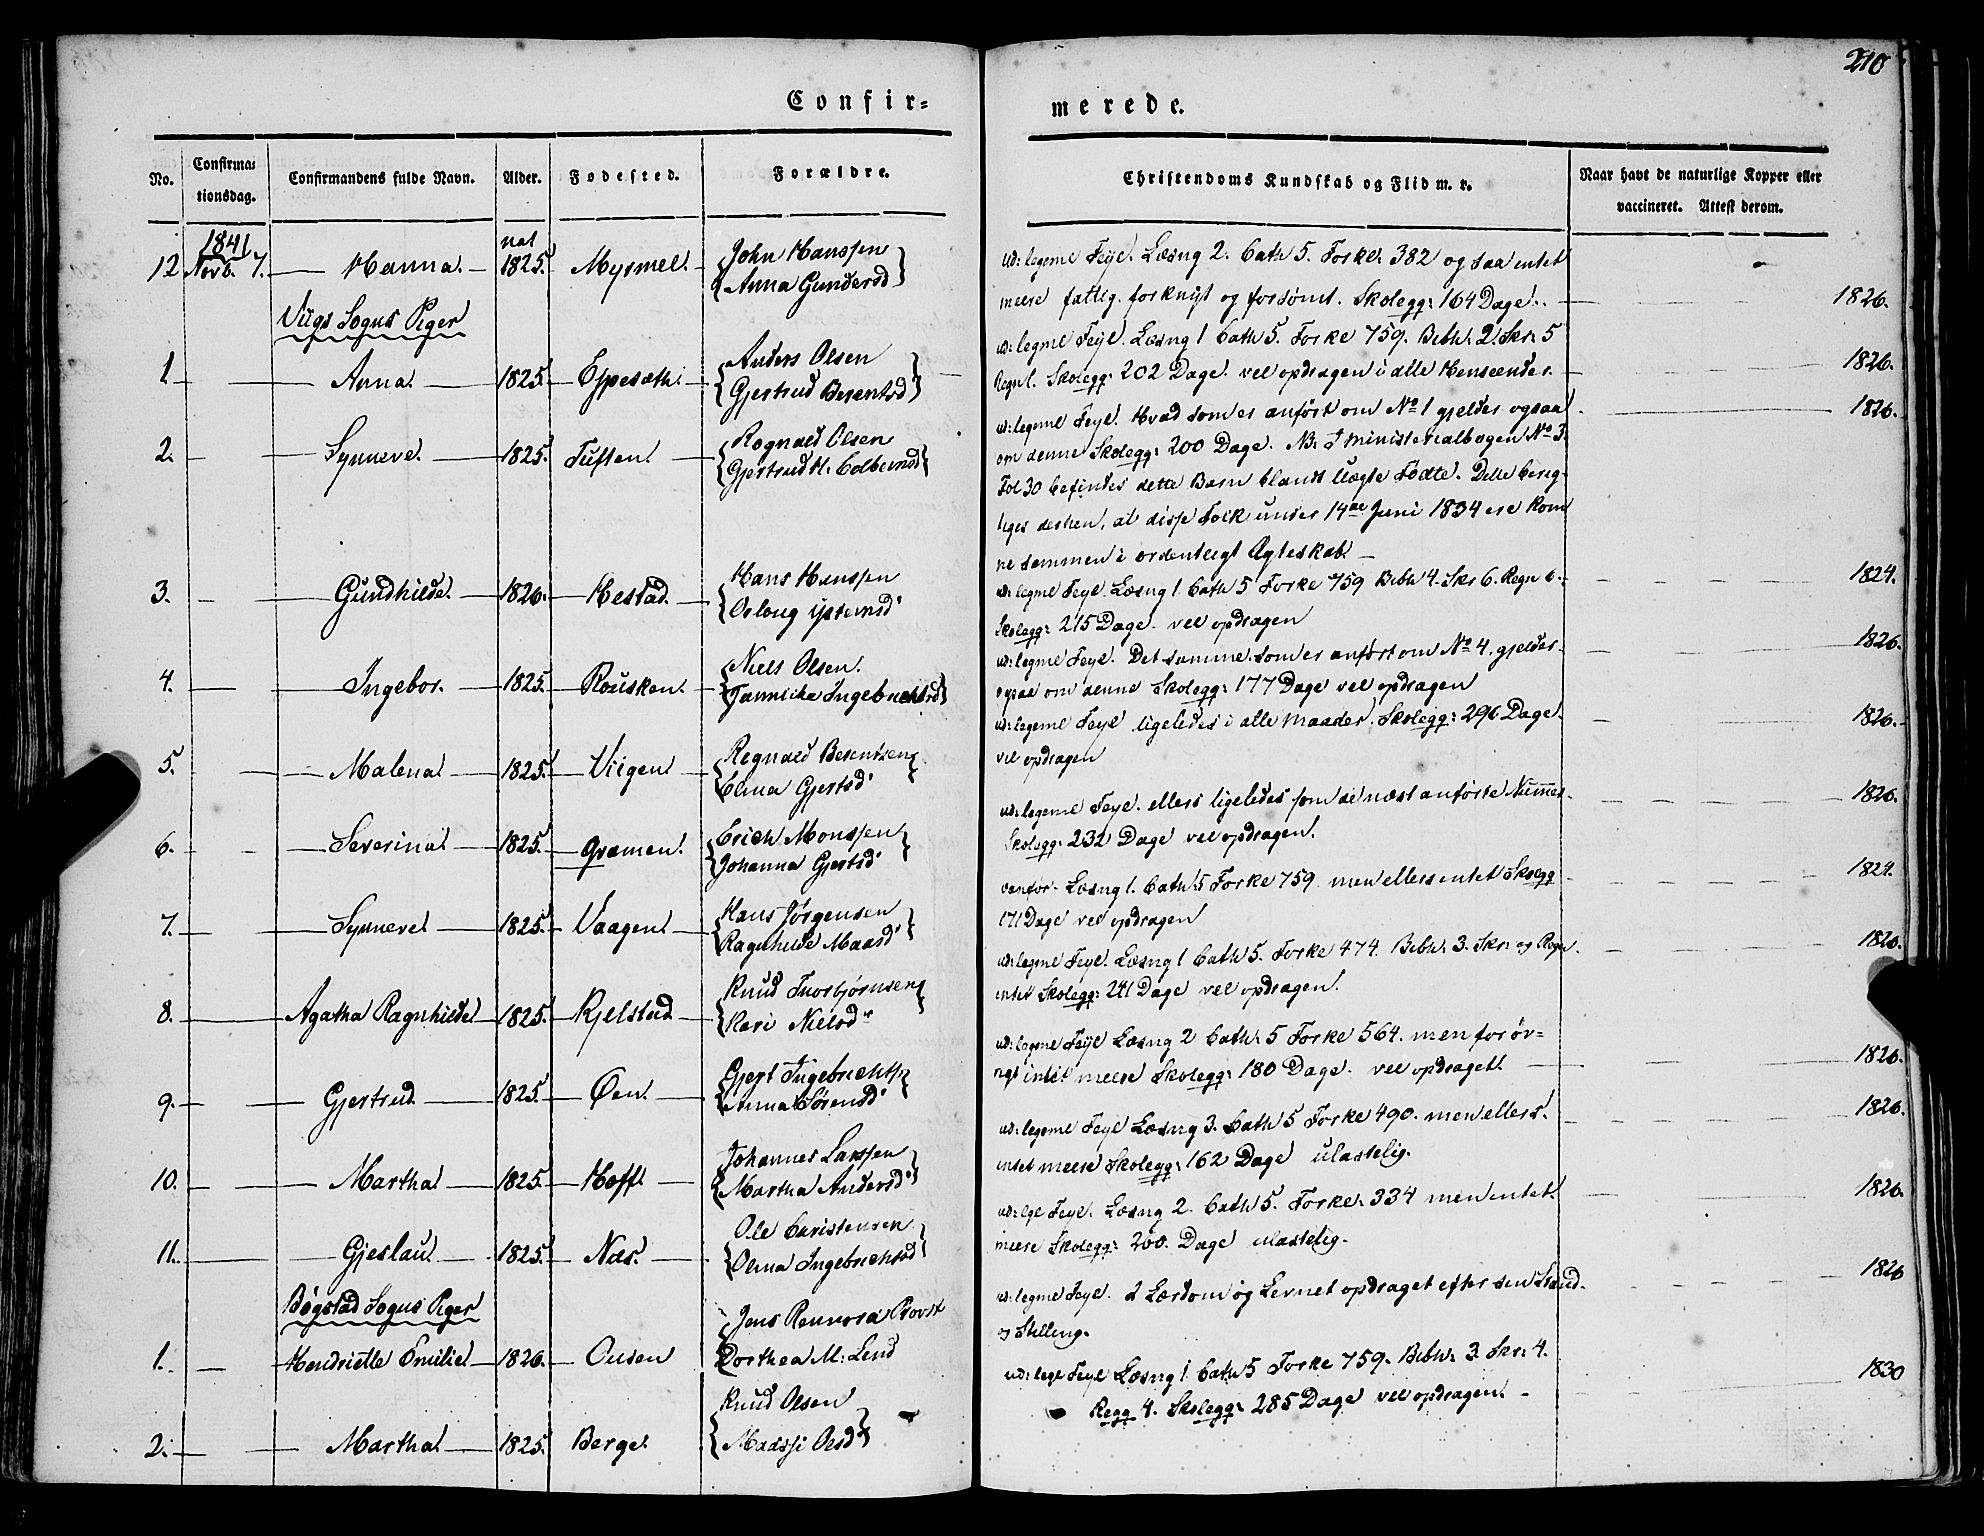 210
Confir=
merede.
No.
Confirma=
tionsdag.
Confirmandens fulde Navn.
Alder.
Fødested.
Forældre.
Christendoms Kundskab og Flid m. v.
Naar havt de naturlige Kopper eller
vaccineret. Attest derom.
1841
12 Novb. 7. Hanna. nat 1825. Myrmel. John Hanssen
Anna Gundersd
ud: legeme Feyl. Læsng 2. Cath 5. Forkl: 382 og saa intet
meere fattig. forknyt og forsømt. Skolegg: 164 Dage. 1826.
Viigs Sogns Piger
1. Anna. 1825. Espesæth. Anders Olsen
Gjertrud Berentsd
ud: legme Feyl. Læsng 1 Cath 5. Forkl 759. Bibh: 2. Skr: 5
Regn 1. Skolegg: 202 Dage. vel opdragen i alle Henseender. 1826.
2. Synneve. 1825. Tuften. Rognald Olsen
Gjertrud H. Colbeinsd
ud: legme Feyl. Hvad som er anført om No 1 gjelder ogsaa 1826.
om denne Skolegg: 200 Dage. NB: I Ministerialbogen No 3.
Fol 30 befindes dette Barn blandt Uægte Fødte. Dette berig-
tiges derhen, at disse Folk under 14de Juni 1834 ere kom
ne sammen i ordentligt Ægteskab.
3. Gundhilde. 1826. Hestad. Hans Hanssen
Oslaug
ud: legme Feyl. Læsng 1. Cath 5 Forkl 759 Bibh 4. Skr 6. Regn 6. 1824.
Skolegg: 215 Dage. vel opdragen
4. Ingebor. 1825. Rousken. Niels Olsen.
Jannicke Ingebrichtsd
ud: legme Feyl. Det samme som er anført om No 4. gjelder 1826.
ogsaa om denne Skolegg: 177 Dage vel opdragen
5. Malena. 1825. Viigen. Regnald Berentsen
Elina Gjertsd
ud: legeme Feyl ligeledes i alle Maader. Skolegg: 296 Dage. 1826.
vel opdragen
6. Severina. 1825. Grømen. Erich Monssen
Johanna Gjertsd
ud: legeme Feyl. ellers ligeledes som de næst anførte Nummer. 1826.
Skolegg: 232 Dage vel opdragen.
7. Synneve. 1825. Vaagen. Hans Jørgensen
Ragnhilde Maasd
vanfør. Læsng 1. Cath 5 Forkl 759. men ellers intet Skolegg 1824.
171 Dage vel opdragen
8. Agatha Ragnhilde. 1825. Kjelstad Knud Thorbjørnsen
Kari Nielsd
ud: legme Feyl. Læsng 1 Cath 5. Forkl 474. Bibh: 3. Skr: og Regn. 1826.
intet Skolegg: 241 Dage vel opdragen.
9. Gjertrud. 1825. Øen. Gjert Ingebrichts
Anna Sørensd
ud: legme Feyl Læsng 2 Cath: 5 Forkl 564. men forøv-
rigt intet meere Skolegg: 180 Dage. vel opdraget. 1826.
10. Martha. 1825. Hoff. Johannes Larssen
Martha Andersd
ud: legeme Feyl Læsng 3. Cath 5 Forkl 490. men ellers 1826.
intet meere Skolegg: 162 Dage ulastelig.
11. Gjeslau. 1825. Næs. Ole Christensen
Olina Ingebrichtsd
ud: lge Feyl. Læsng 2. Cath 5. Forkl: 334 men intet 1826.
meere Skolegg: 200. Dage ulastelig.
Bøgstad Sogns Piger
1. Hendrielle Emilie 1826. Ousen Jens Rennord Provst
Dorthea M: Lind
ud: legme Feyl. I Lærdom og Levnet opdraget efter sin Stand 1826
og Stilling.
2. Martha 1825. Berge. Knud Olsen
Madssi Olsd
ud: lege Feyl Læsng 1. Cath 5 Forkl 759. Bibh: 3. Skr: 4. 1830
Regg 4. Skolegg: 285 Dage vel opdragen.